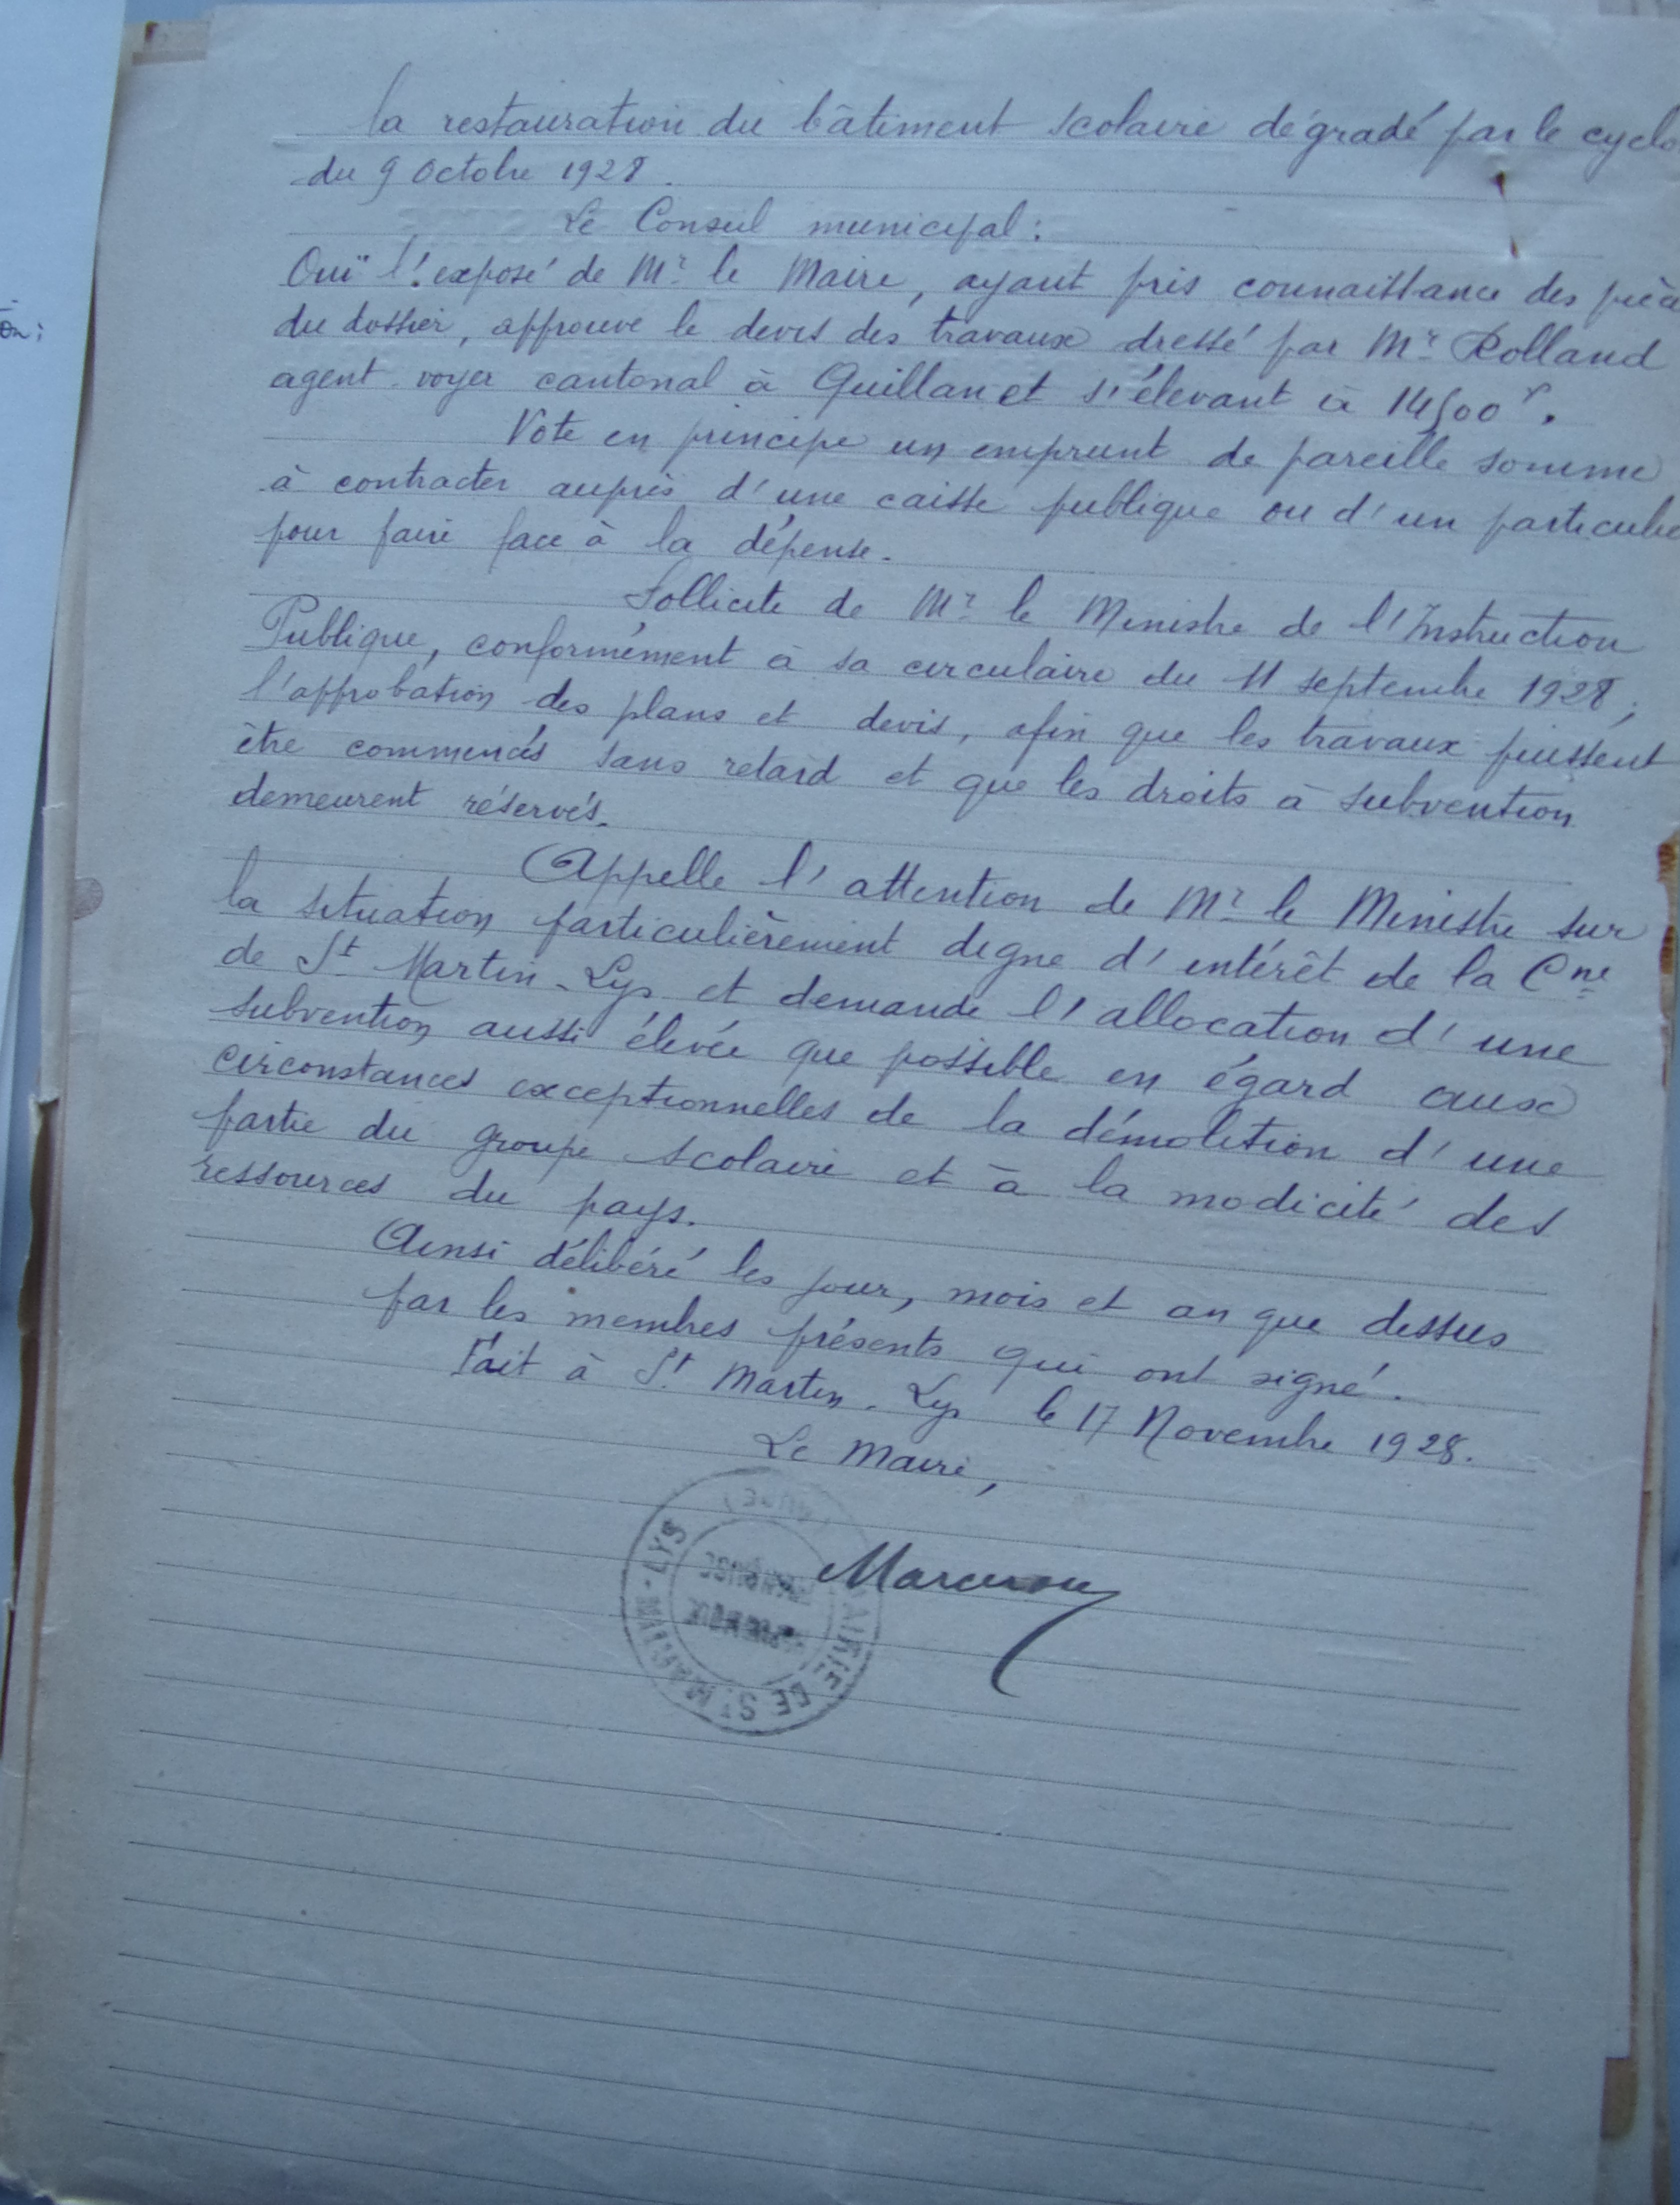 on;
la restauration du bâtiment scolaire dégradé par le cyclo
du 9 Octobre 1928.
Le Conseil municipal :
Ouï l'exposé de Mr le Maire, ayant pris connaissance des piè
du dossier, approuve le devis des travaux dressé par Mr Rolland
agent-voyer cantonal à Quillan et s'élevant à 14500 f.
Vote en principe un emprunt de pareille somme
à contracter auprès d'une caisse publique ou d'un particulie
pour faire face à la dépense.
Sollicite de Mr le Ministre de l'Instruction
Publique, conformément à sa circulaire du 11 septembre 1928;
l'approbation des plans et devis, afin que les travaux puissent
être commencés sans retard et que les droits à subvention
demeurent réservés.
Appelle l'attention de Mr le Ministre sur
la situation particulièrement digne d'intérêt de la Cne
de St Martin-Lys et demande l'allocation d'une
subvention aussi élevée que possible en égard aux
circonstances exceptionnelles de la démolition d'une
partie du groupe scolaire et à la modicité des
ressources du pays.
Ainsi délibéré les jour, mois et an que dessus
par les membres présents qui ont signé.
Fait à St Martin-Lys le 17 Novembre 1928.
Le Maire,
MAIRIE DE ST MARTIN-LYS
(AUDE)